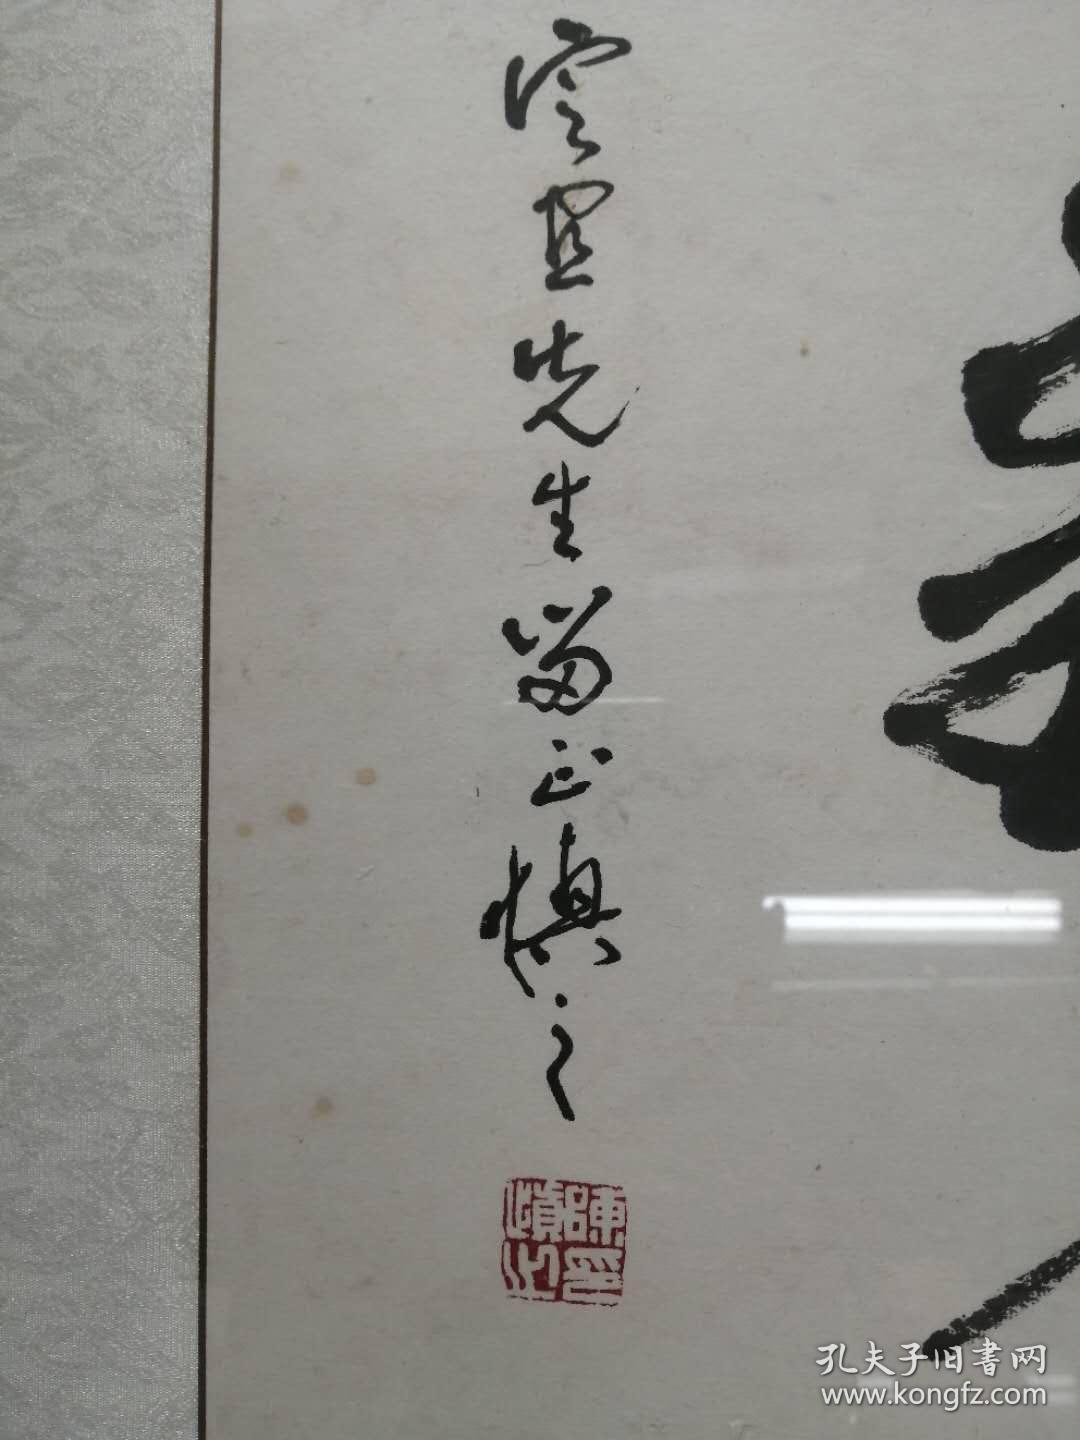 先生留正慎之
陳印
慎之
孔夫子旧書网
www.kongfz.com